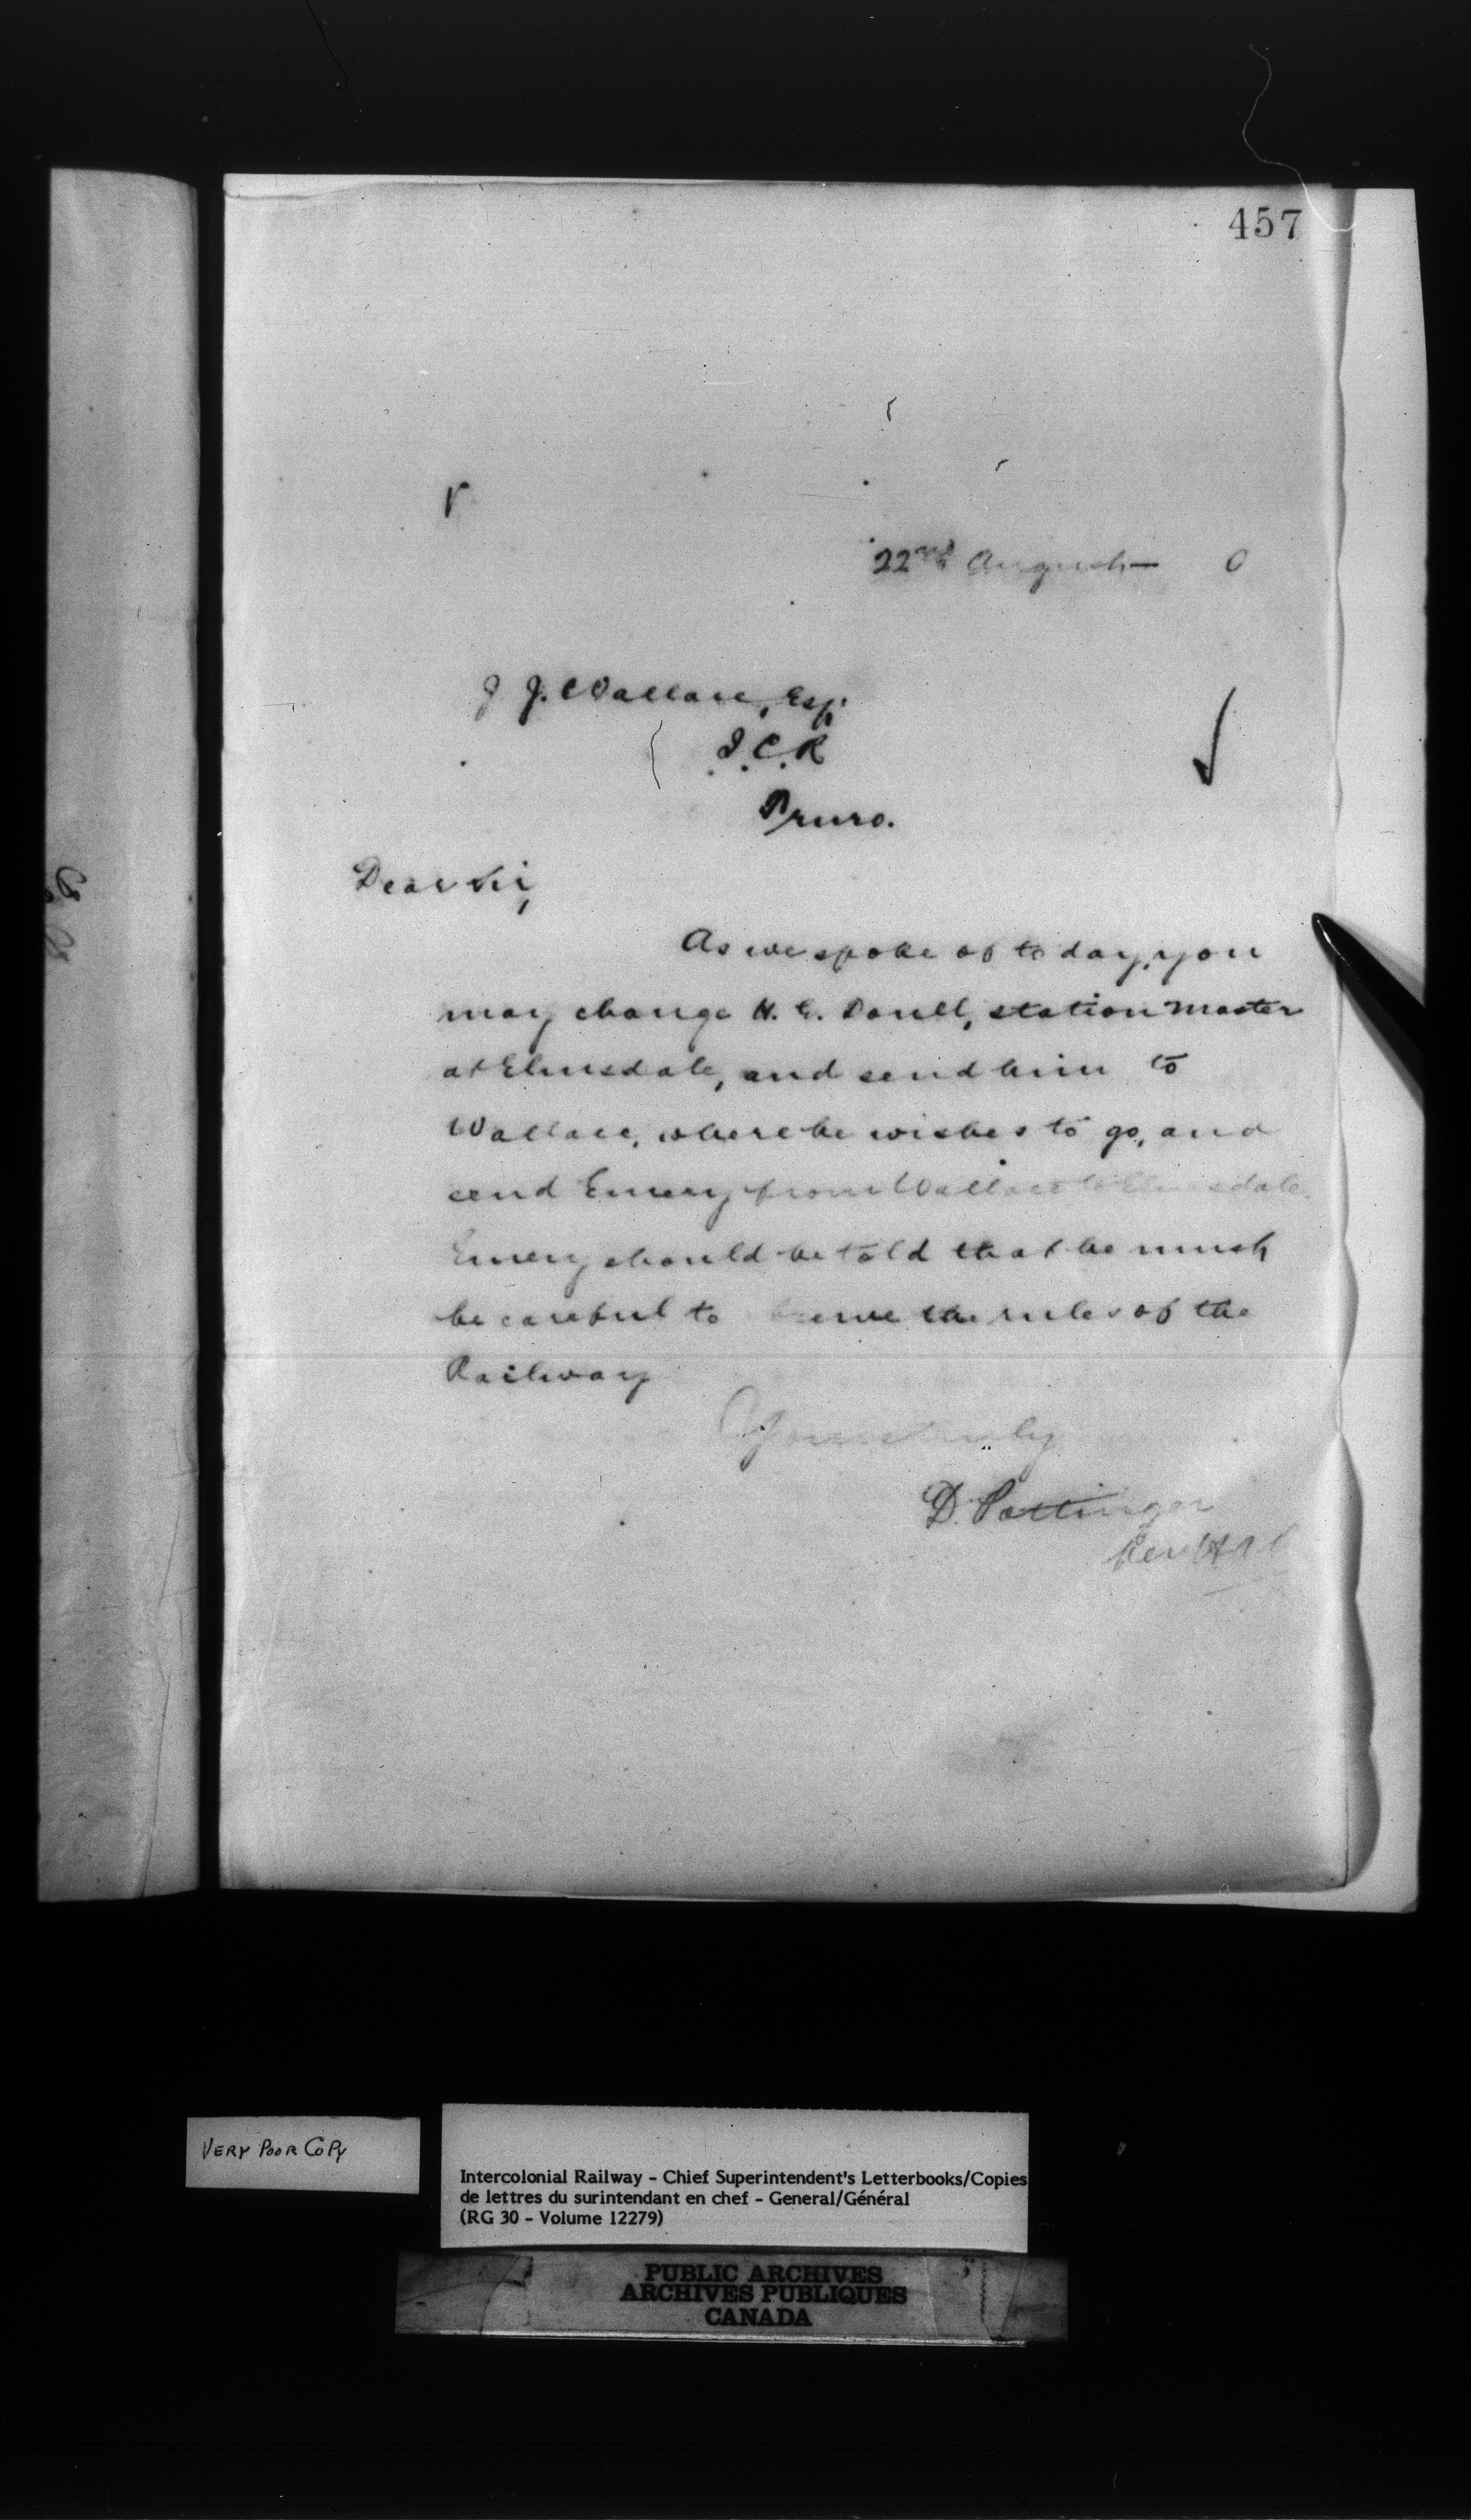 457
22nd August 0
J. J. Wallace, Esq.
I.C.R
Truro.
Dear Sir,
As we spoke of to day, you
may change H. E. station Master
at Elmsdale, and send him to
Wallace, where he wishes to go, and
send Emery from Wallace to Elmsdale.
Emery should be told that he must
be careful to the rules of the
Railway
Yours truly
D. Pottinger
VERY POOR COPY
Intercolonial Railway - Chief Superintendent's Letterbooks/Copies
de lettres du surintendant en chef - General/Général
(RG 30 - Volume 12279)
PUBLIC ARCHIVES
ARCHIVES PUBLIQUES
CANADA